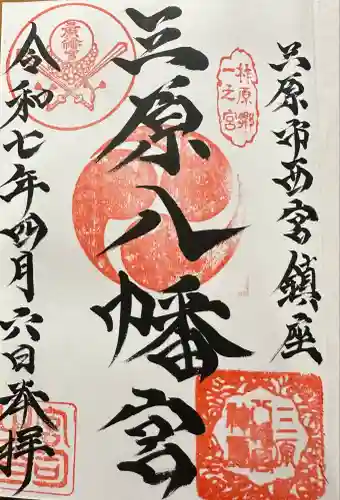 三原市西宮鎮座
柞原郷
一之宮
三原八幡宮
令和七年四月六日奉拝
八幡宮
三原
八幡宮